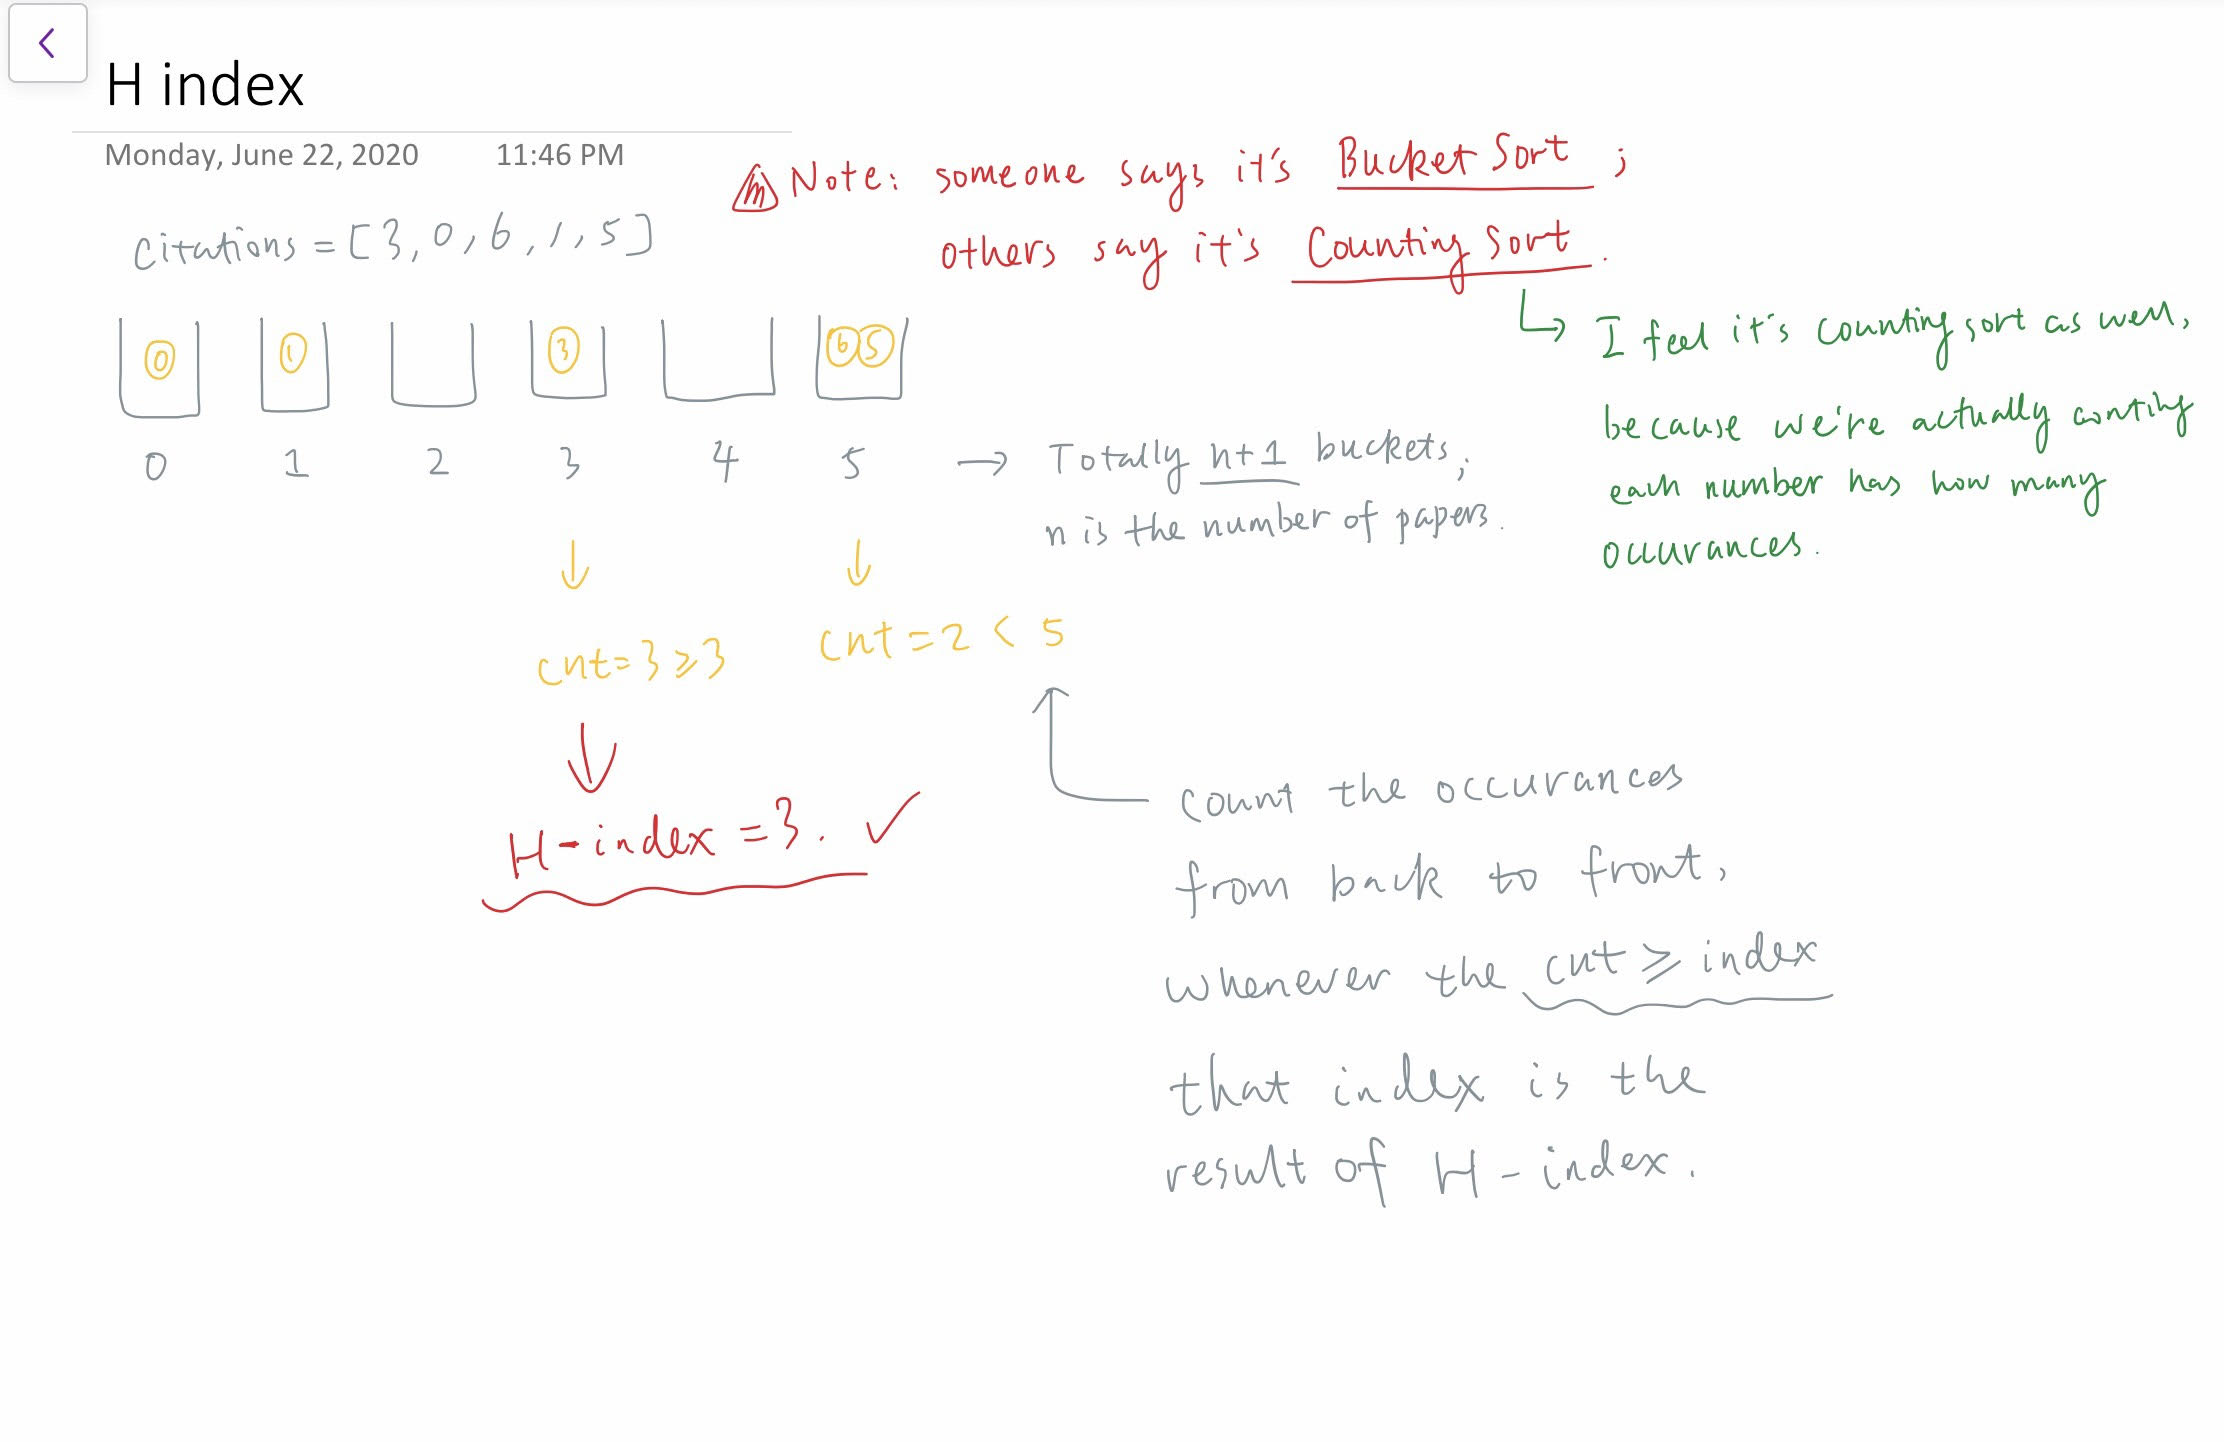 H index
Monday, June 22, 2020 11:46 PM
Note: someone says it's Bucket Sort ;
others say it's Counting Sort .
citations = [3, 0, 6, 1, 5]
I feel it's counting sort as well,
because we're actually conting
each number has how many
occurances .
0 1 3 6 5
0 1 2 3 4 5
Totally n+1 buckets ;
n is the number of papers .
cnt=3 ≥ 3 cnt = 2 < 5
H-index = 3.
count the occurances
from back to front ,
whenever the cnt ≥ index
that index is the
result of H-index .